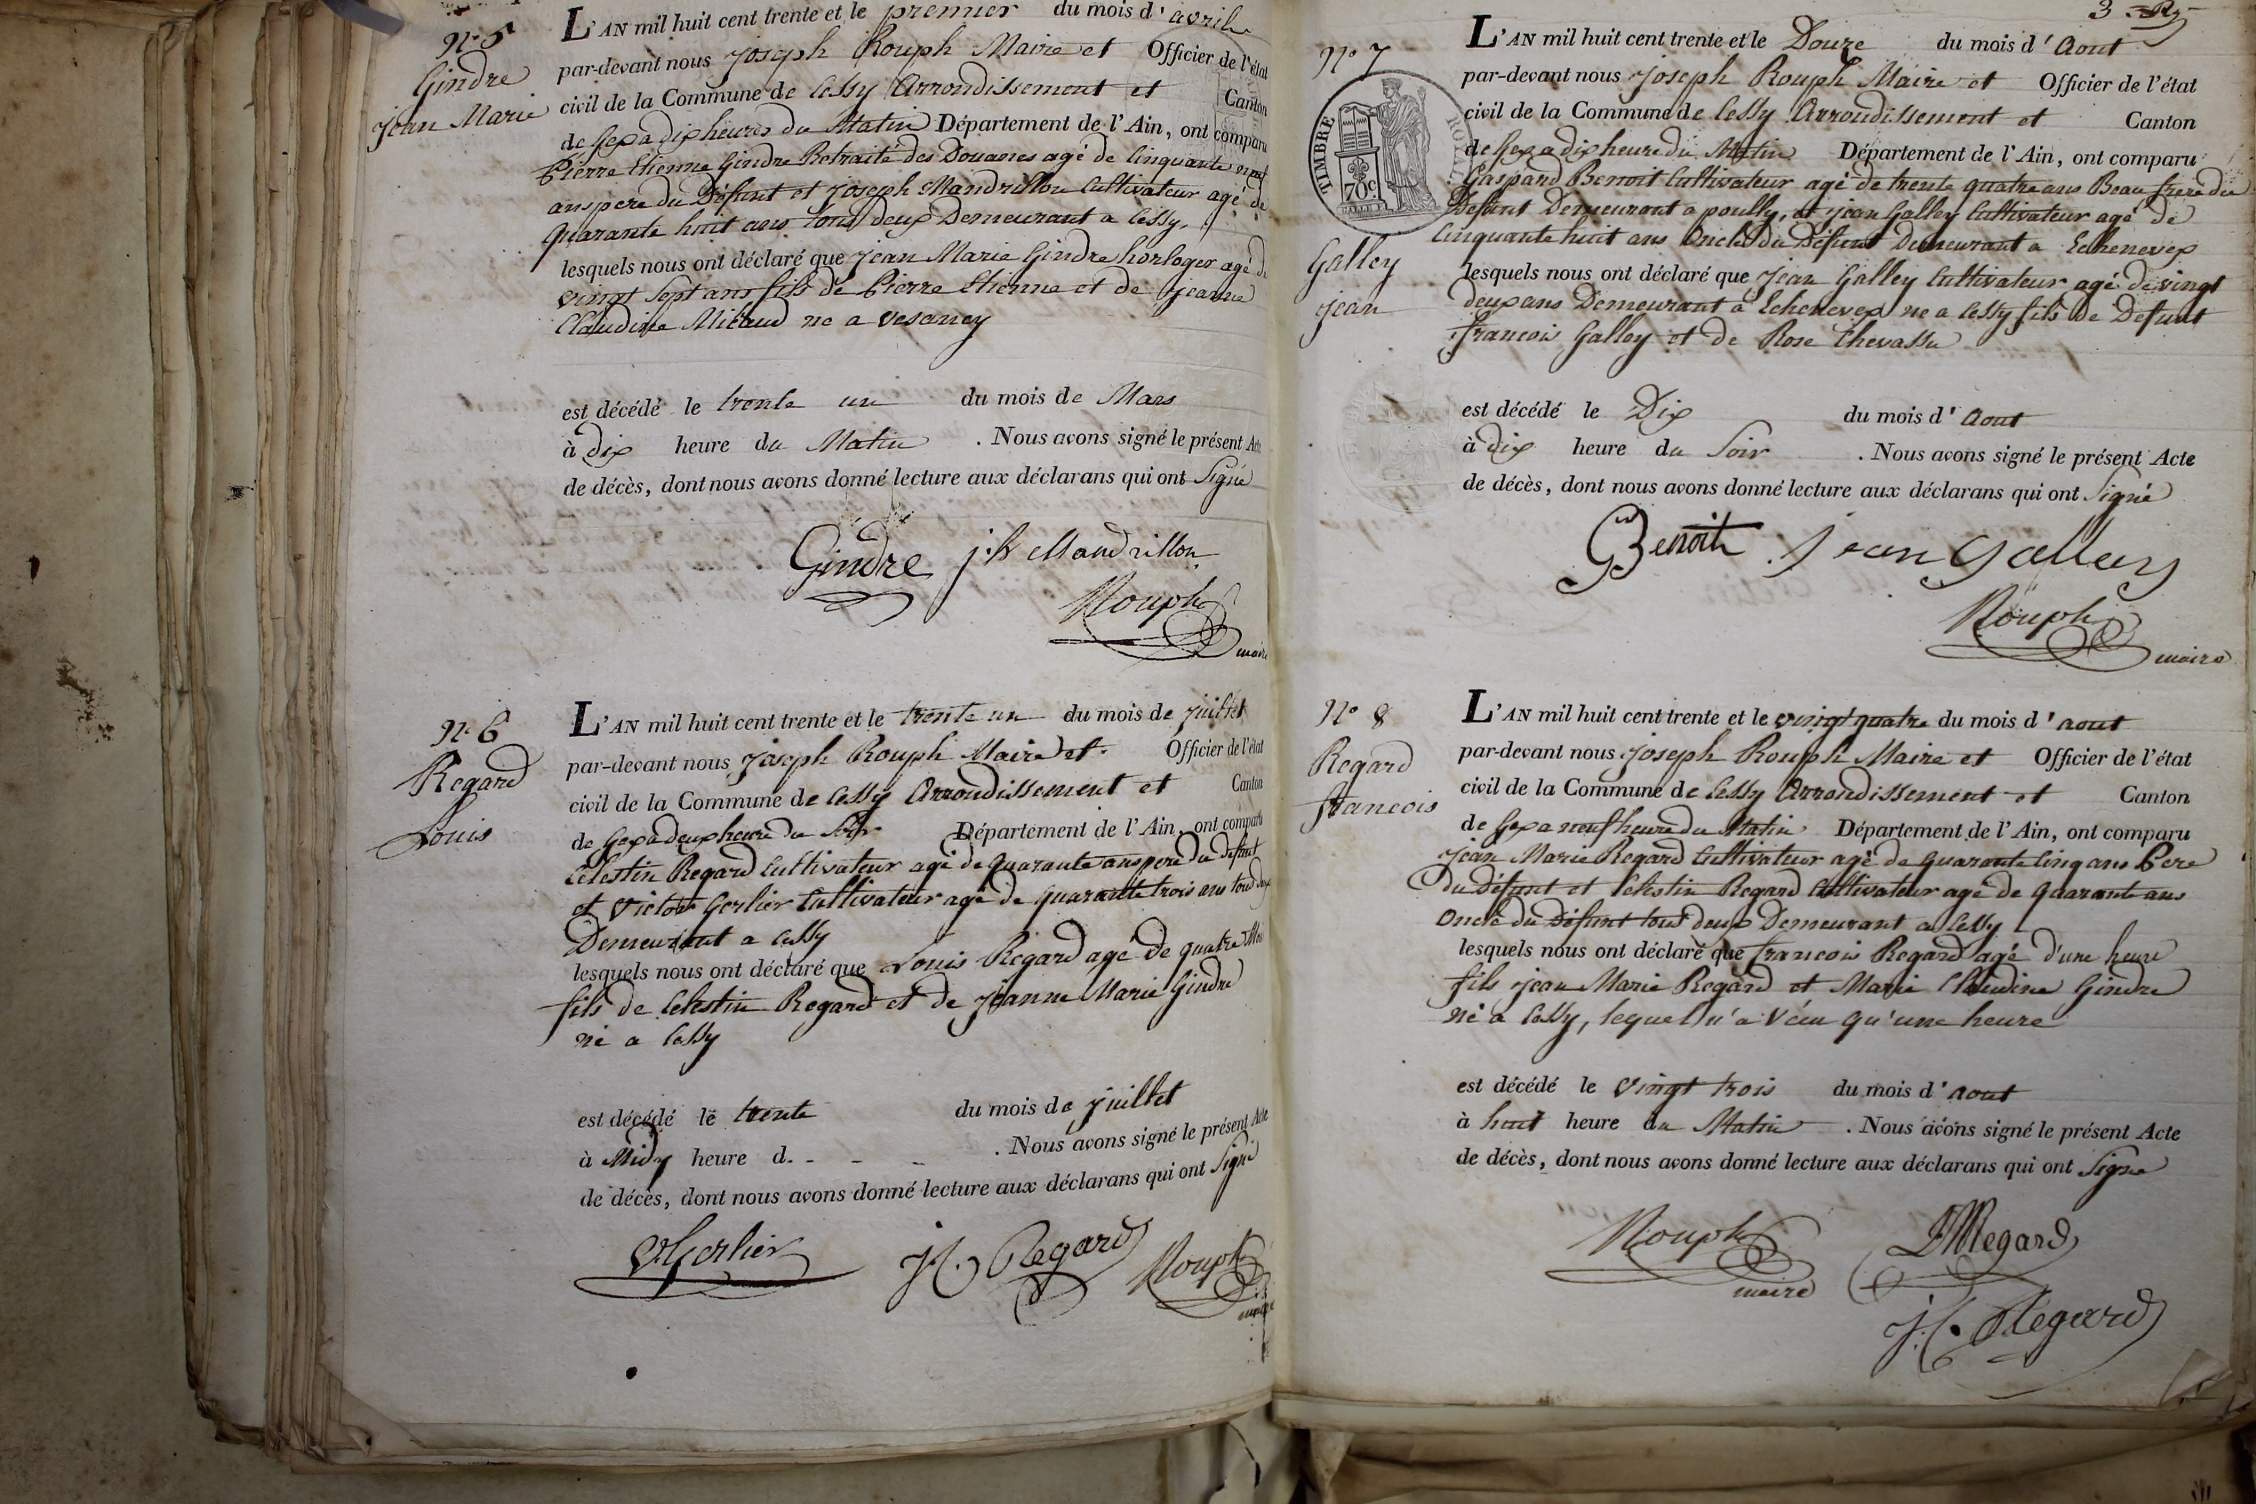 N° 5
Gindre
jean Marie
L'AN mil huit cent trente et le premier du mois d'avril
par-devant nous joseph Rouph Maire et Officier de l'état
civil de la Commune de Cessy Arrondissement et Canton
de Gex a dix heures du Matin Département de l'Ain, ont comparu
Pierre Etienne Gindre Retraité des Douanes agé de Cinquante neuf
ans pere du Défunt et joseph Mandrillon Cultivateur agé de
quarante huit ans tous deux Demeurant a Cessy.
lesquels nous ont déclaré que jean Marie Gindre horloger agé de
vingt Sept ans fils de Pierre Etienne et de jeanne
Claudine Micaud ne a vesancy
est décédé le trente un du mois de Mars
à dix heure du Matin . Nous avons signé le présent Acte
de décès, dont nous avons donné lecture aux déclarans qui ont Signé
Gindre j.h Mandrillon
Rouph
maire
N° 6
Regard
Louis
L'AN mil huit cent trente et le trente un du mois de juillet
par-devant nous joseph Rouph Maire et Officier de l'état
civil de la Commune de Cessy Arrondissement et Canton
de Gex a deux heure du Soir Département de l'Ain, ont comparu
Celestin Regard Cultivateur agé de quarante ans pere du défunt
et Victor Gerlier Cultivateur agé de quarante trois ans tous deux
Demeurant a Cessy
lesquels nous ont déclaré que Louis Regard agé de quatre Mois
fils de Celestin Regard et de jeanne Marie Gindre
né a Cessy
est décédé le trente du mois de juillet
à Midy heure d. - - - . Nous avons signé le présent Acte
de décès, dont nous avons donné lecture aux déclarans qui ont Signé
V Gerlier J.C. Regard Rouph
maire
3
N° 7
TIMBRE ROYAL
70c
Galley
jean
L'AN mil huit cent trente et le Douze du mois d'Aout
par-devant nous joseph Rouph Maire et Officier de l'état
civil de la Commune de Cessy Arrondissement et Canton
de Gex a dix heure du Matin Département de l'Ain, ont comparu
Gaspard Benoit Cultivateur agé de trente quatre ans Beau frere du
Défunt Demeurant a pouilly, et jean Galley Cultivateur agé de
Cinquante huit ans Oncle du Défunt Demeurant a Echenevex
lesquels nous ont déclaré que jean Galley Cultivateur agé de vingt
deux ans Demeurant a Echenevex ne a Cessy fils de Defunt
francois Galley et de Rose Chevassu
est décédé le Dix du mois d'Aout
à dix heure du Soir . Nous avons signé le présent Acte
de décès, dont nous avons donné lecture aux déclarans qui ont Signé
G Benoit jean Galley
Rouph
maire
N° 8
Regard
francois
L'AN mil huit cent trente et le vingt quatre du mois d'aout
par-devant nous joseph Rouph Maire et Officier de l'état
civil de la Commune de Cessy Arrondissement et Canton
de Gex a neuf heure du Matin Département de l'Ain, ont comparu
jean Marie Regard Cultivateur agé de quarante Cinq ans Pere
du défunt et Celestin Regard Cultivateur agé de quarante ans
oncle du Défunt tous deux Demeurant a Cessy
lesquels nous ont déclaré que francois Regard agé d'une heure
fils jean Marie Regard et Marie Claudine Gindre
né a Cessy, lequel n'a vécu qu'une heure
est décédé le vingt trois du mois d'aout
à huit heure du Matin . Nous avons signé le présent Acte
de décès, dont nous avons donné lecture aux déclarans qui ont Signé
Rouph JMRegard
maire
J.C. Regard